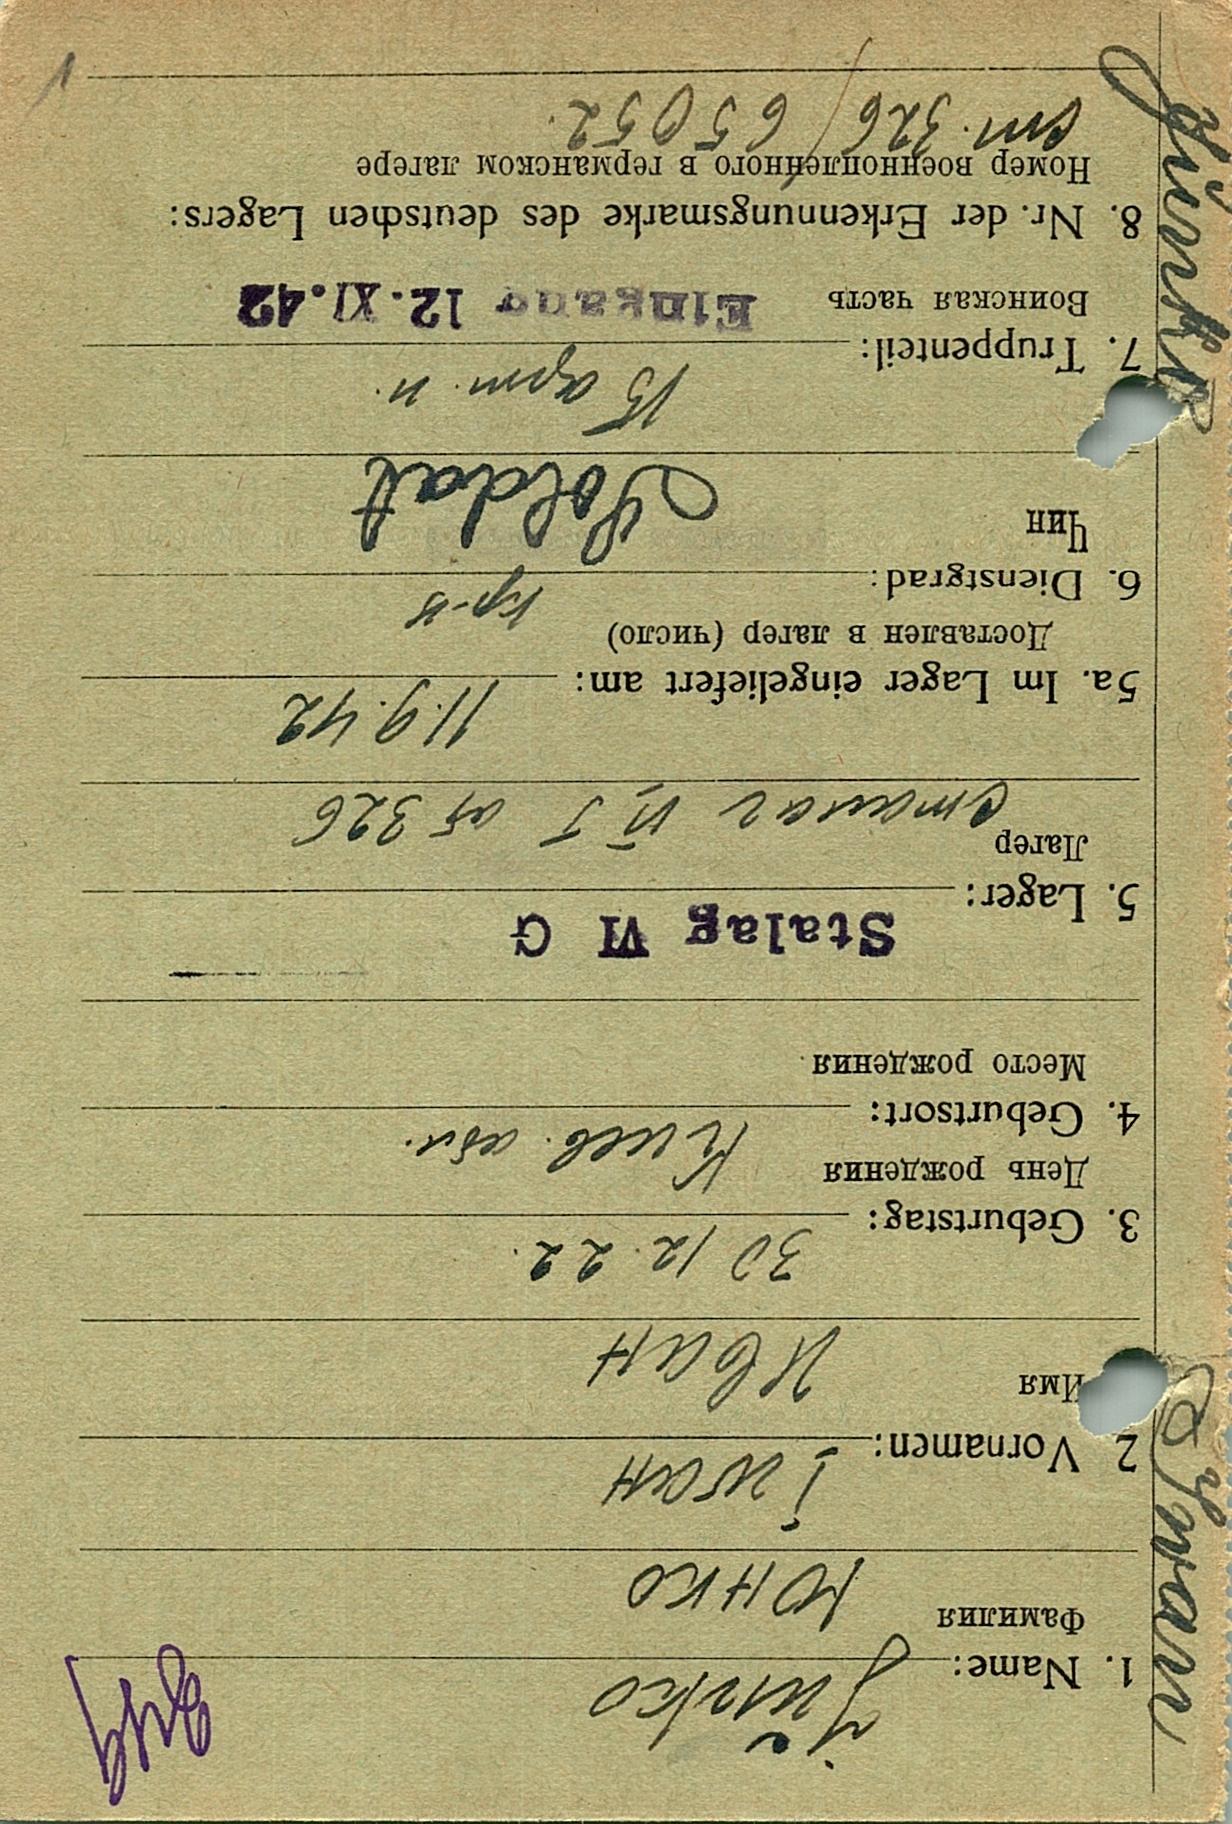 Jünko
1. Name:
Фамилия
Юнко
Iwan
2 Vornamen:
Имя
Иван
30 12. 22.
3. Geburtstag:
День рождения
Киев. обл.
4. Geburtsort:
Место рождения
Stalag VI G
5. Lager:
Лагер
сталаг VI
326
11.9.42
5a. Im Lager eingeliefert am:
Доставлен в лагер (число)
кр-ц
6. Dienstgrad:
Чин
Soldat
15 арт. п.
7. Truppenteil:
Воинская часть
Eingang 12. XI. 42
8. Nr. der Erkennungsmarke des deutschen Lagers:
Номер военнопленного в германском лагере
ст. 326/65052.
Jünko Iwan